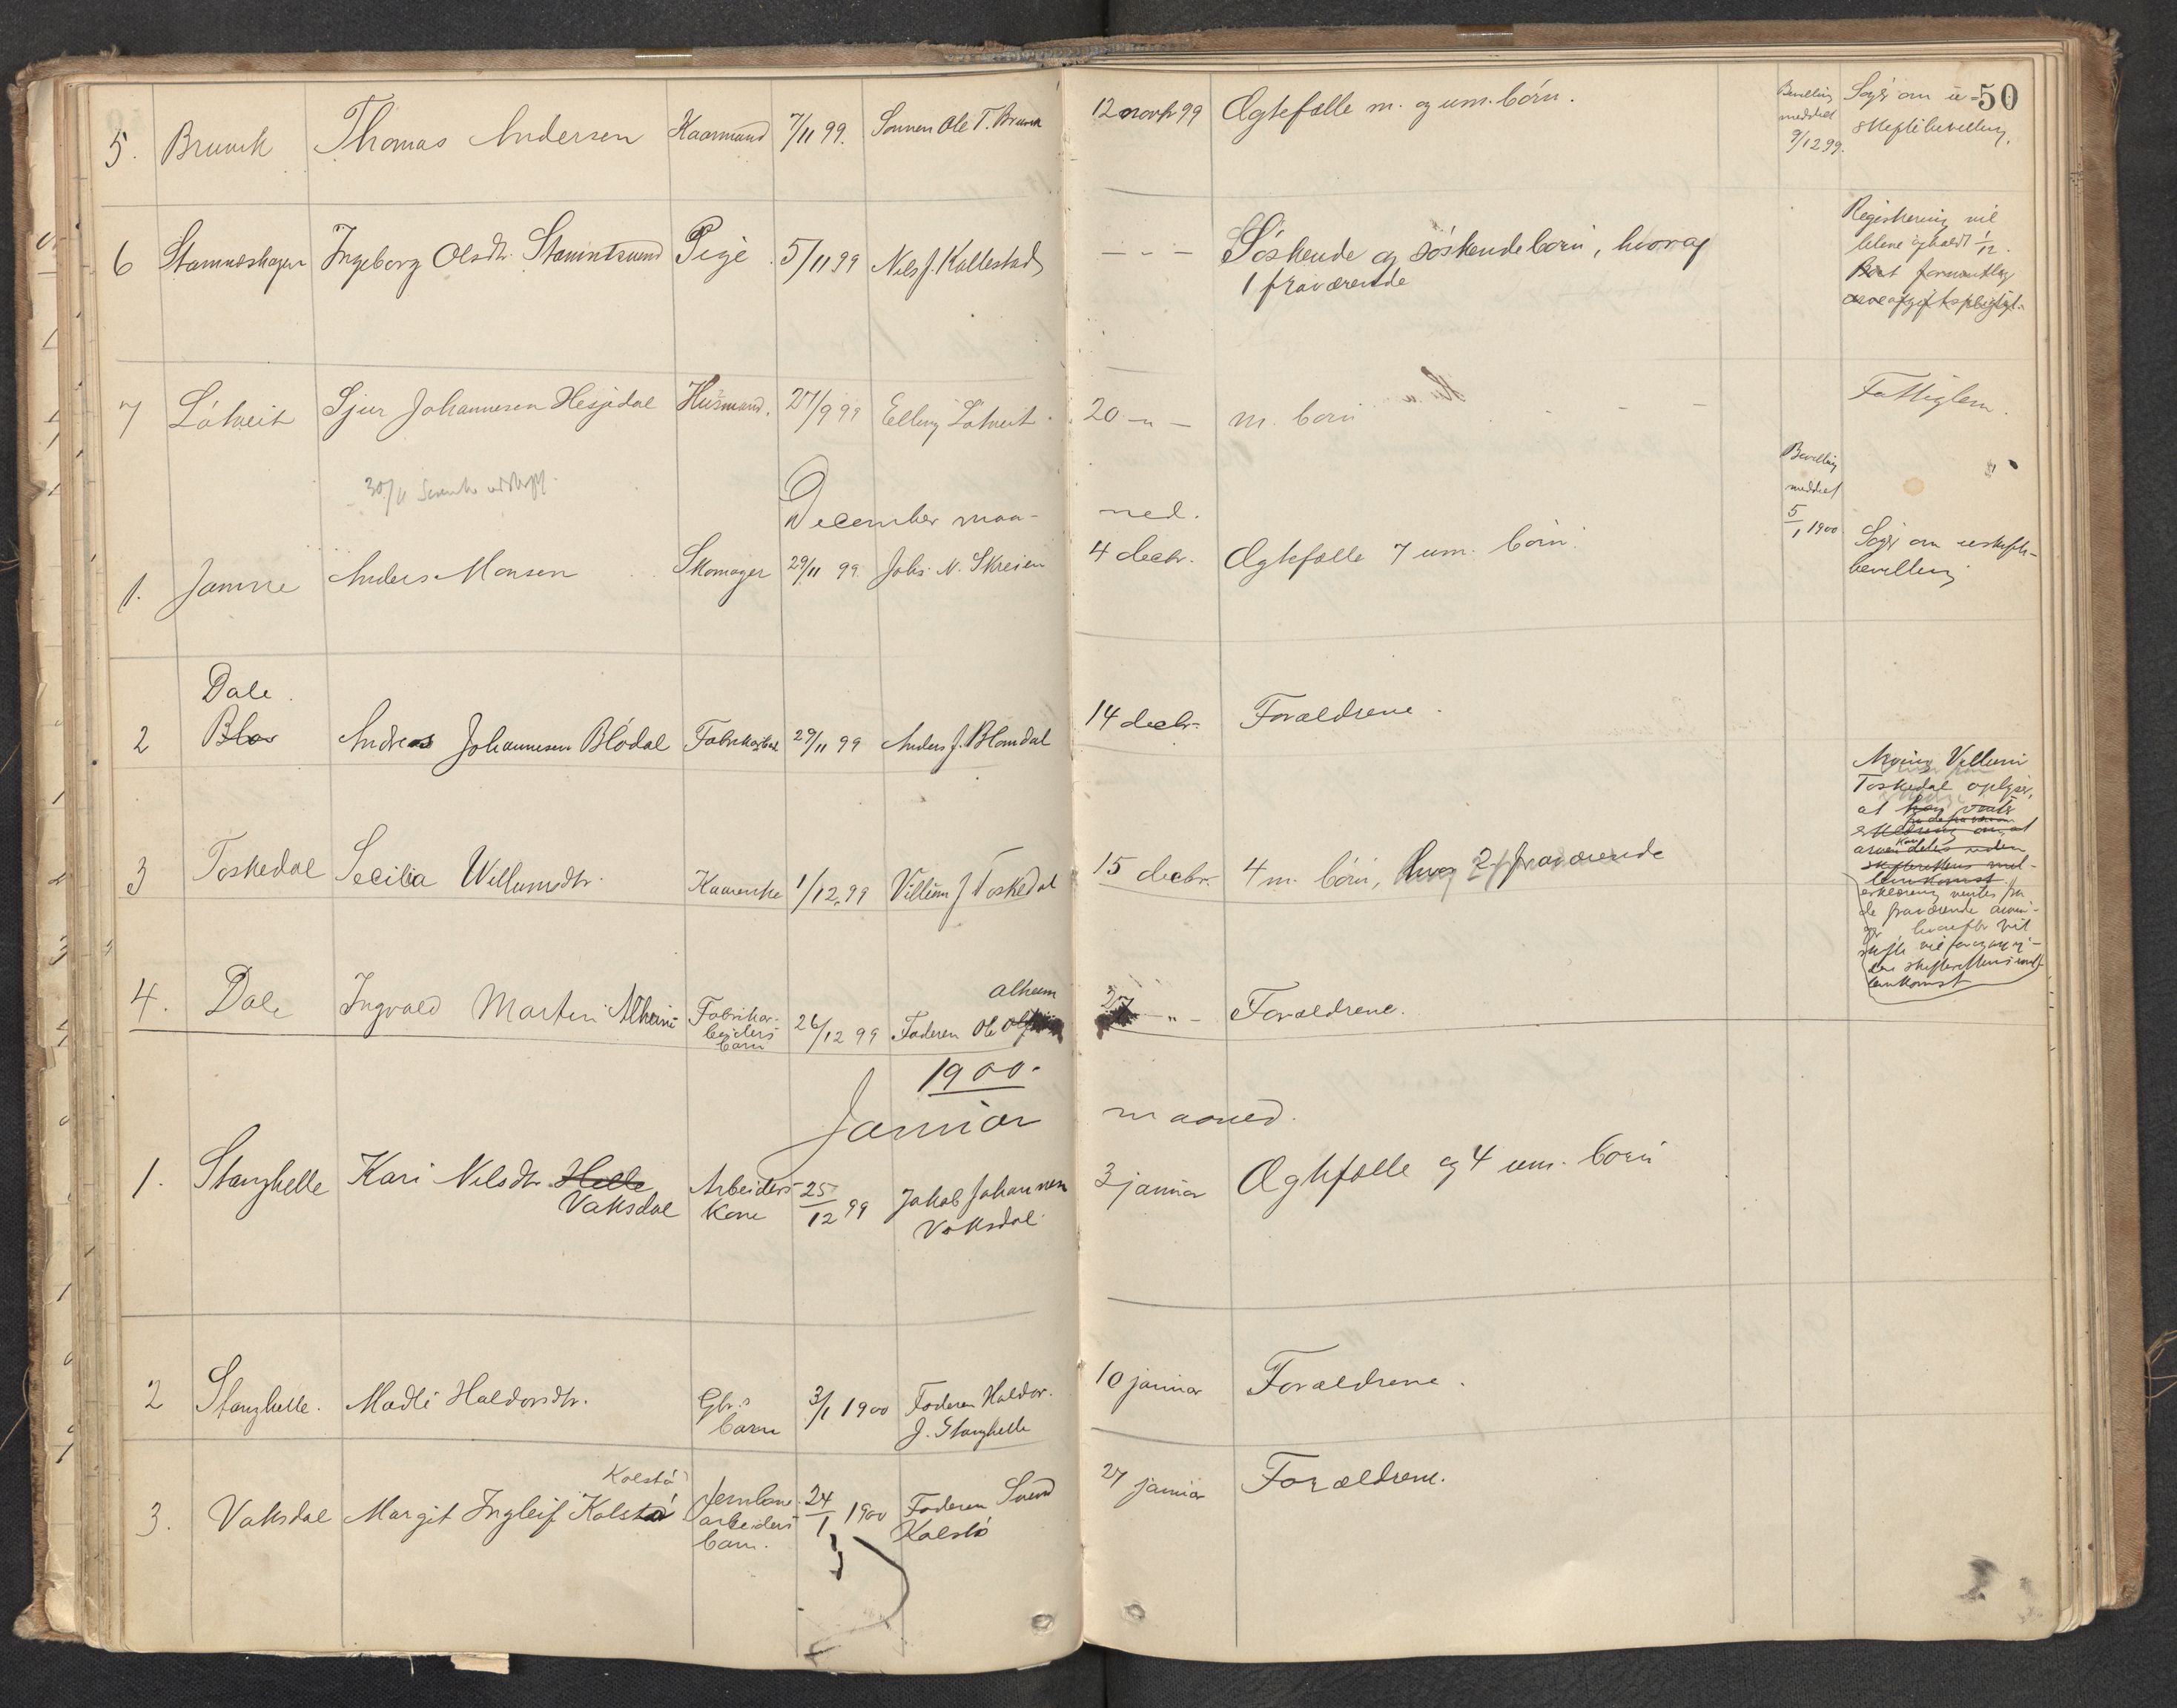 50
5. Bruvik Thomas Andersen Kaarmand 7/11 99. Sønnen Ole T. Bruvik 12 novbr 99 Ægtefælle m. og um. børn. Bevilling meddelt 9/12 99. Søger om u-
skiftebevilling.
6 Stamneshagen Ingeborg Olsdtr. Stamnesund Pige 5/11 99 Nils J. Kallestad — " — Søskende og søskendebørn, hvoraf
1 fraværende
Registrering vil
blive afholdt 1/12.
Boet formentlig
arveafgiftspligtigt.
7 Låtveit Sjur Johannesen Hesjedal Husmand. 27/9 99 Elling Låtveit. 20 — " — m. børn Fattiglem.
30/11
December maa-
ned.
1. Jamne Anders Monsen Skomager 29/11 99. Johs. N. Skreien 4 decbr. Ægtefælle 7 um. børn. Bevilling
meddelt
5/1 1900
Søger om uskifte-
bevilling
Dale.
2 Blom Andreas Johannesen Blødal Fabrikarbeid 29/11 99 Anders J. Blomdal 14 decbr. Forældrene.
3 Toskedal Secilia Willumsdtr. Kaarenke 1/12 99 Villum J. Toskedal 15 decbr. 4 m. børn, hvoraf 2 fraværende
Villum
Toskedal oplyser,
at han venter
erklæring om, at
arven deles uden
skifterettens mel-
lemkomst.
erklæring ventes fra
de fraværende arvin-
ger hvorefter vil
skifte vil foregaa u-
den skifterettens mel-
lemkomst
4. Dale Ingvald Martin Alheim Fabrikar-
beiders
barn 26/12 99 Faderen Ole Alheim 27 — " — Forældrene.
1900.
Januar
maaned.
1. Stanghelle Kari Nilsdtr. Helle
Vaksdal Arbeiders
kone 25/12 99 Jakob Johannesen
Vaksdal 3 januar Ægtefælle og 4 um. børn
2 Stanghelle. Madli Haldorsdtr. Gbr.s
barn 3/1 1900 Faderen Haldor.
J. Stanghelle 10 januar Forældrene.
Kolstø
3. Vaksdal Margit Ingleif Kolstø Jernbane-
arbeiders
barn. 24/1 1900 Faderen Svend
Kolstø 27 januar Forældrene.